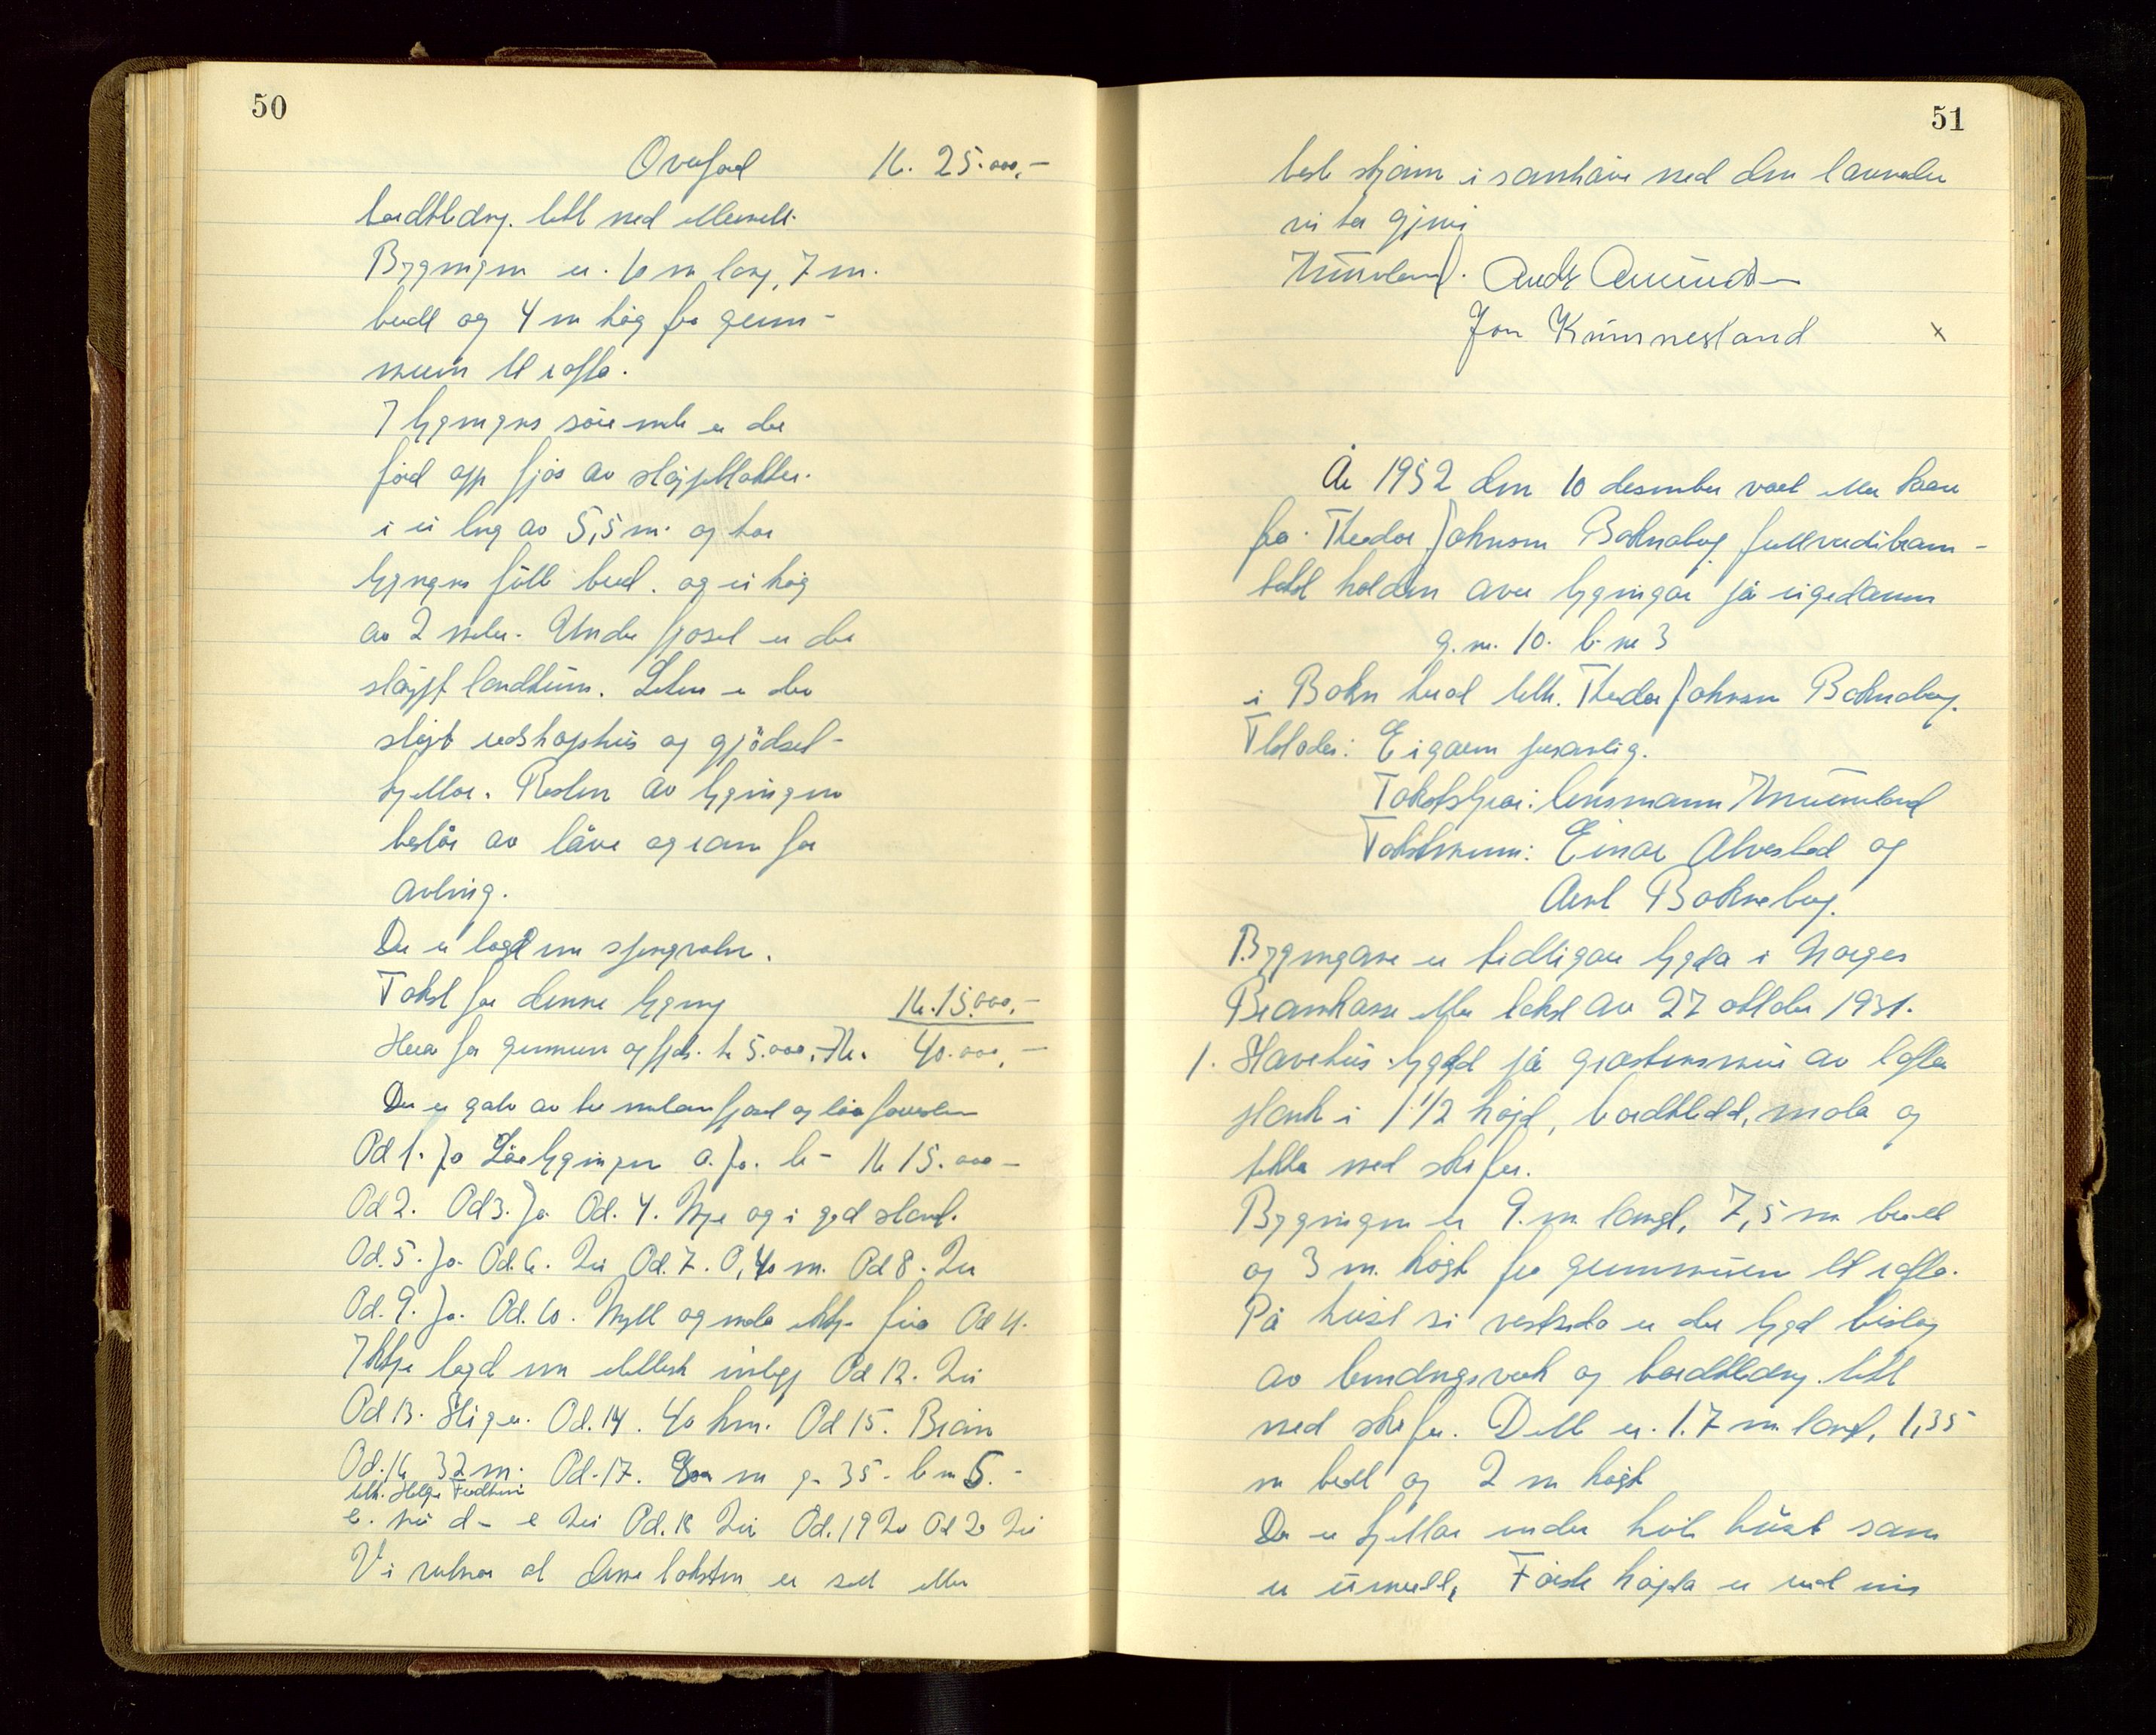 50
Overført K. 25.000,-
bordkledng. tekt med
Bygningen er. 10 m lang, 7 m.
bredt og 4 m høg fra grunn-
muren til rafta.
I bygningens søre ende er der
ført opp fjøs av støyptblokker.
i ei leng av 5,5 m. og har
bygngens fulle bred. og ei høg
av 2 meter. Under fjøset er der
støypt landkum. Likeens er der
støpt redskaphus og gjødsel-
kjellar. Resten av bygningen
består av låve og rom for
avling.
Der er lagd inn
Takst for denne bygning K. 15.000,-
Herav for grunnmur og fjøs. kr 5.000,- K. 40.000,-
Der er av tre mellom fjøset og løa
Od 1. Ja Løebygningen a. Ja. b - K 15.000 -
Od 2. Od 3. Ja Od. 4. Nye og i god stand.
Od. 5. Ja. Od. 6. Nei Od. 7. 0,40 m. Od 8. Nei
Od. 9. Ja. Od. 10. Nytt og ikkje Od 11.
Ikkje lagd inn elektrisk innlegg Od 12. Nei
Od 13. Stiger. Od. 14. 40 km. Od 15. Brønn
Od. 16 32 m. Od. 17. g- 35 - b nr 5. -
tilh. Helge
c. nei d - e Nei Od. 18 Nei Od. 19 Nei Od 20 Nei
Vi vitnar at denne taksten er sett etter
51
beste skjønn i samhøve med den lovnaden
vi har gjevi
Andr Amundsen
Jon Krunnesland x
År 1952 den 10 desember vart etter krav
fra Theodor Johnsen Boknaberg fullverdibrann-
takst halden over bygningar på eigedomen
g. nr. 10. b. nr 3
i Bokn herad tilh. Theodor Johnsen Boknaberg.
Tilstades: Eigaren personlig.
Takststyrar: lensmann
Takstmenn: Einar Alvestad og
Arnt Boknaberg.
Bygningane er tidligare trygda i Norges
Brannkasse etter takst av 27 oktober 1931.
1. Våvehus bygd på gråsteinsmur av lafta
plank i 1 1/2 høgd, bordkledd, mala og
tekka med skifer.
Bygningen er 9. m langt, 7,5 m bredt
og 3 m. høgt fra grunnmuren til rafta.
På huset si vestsida er der bygd bislag
av bindingsverk og bordkledng. tekt
med skifer. Dett er. 1.7 m langt, 1,35
m bredt og 2 m høgt
Der er kjellar under heile huset som
er innreidt, Første høgda er